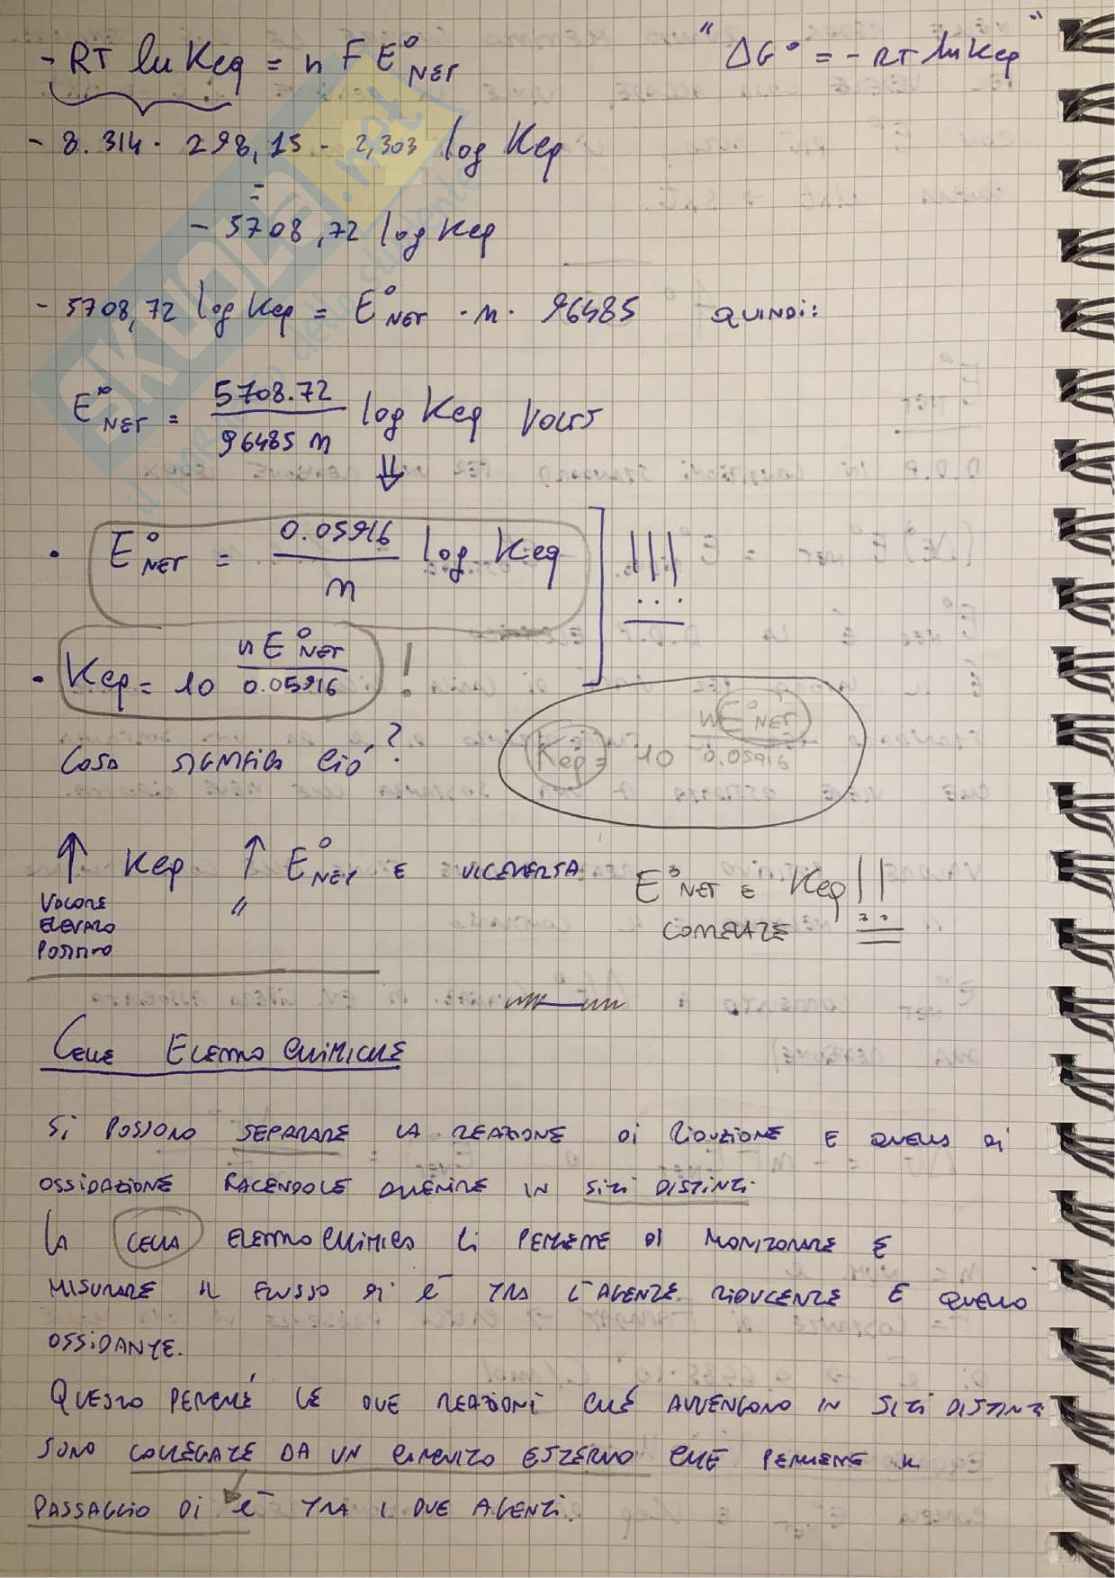 - RT ln Keq = n F E°NET " ΔG° = - RT ln Keq "
- 8.314 · 298,15 - 2,303 log Keq
=
- 5708,72 log Keq
- 5708,72 log Keq = E°NET · n · 96485 QUINDI:
E°NET = 5708.72 / 96485 n log Keq VOLTS
⇓
· E°NET = 0.05916 / n log Keq ] !!!
· Keq = 10 nE°NET / 0.05916 !
Keq = 10 nE°NET / 0.05916
COSA SIGNIFICA CIÓ ?
↑ Keq ↑ E°NET E VICEVERSA
VALORE "
ELEVATO
POSITIVO
E°NET E Keq !!
CORRELATE
CELLE ELETTROCHIMICHE
SI POSSONO SEPARARE LA REAZIONE DI RIDUZIONE E QUELLA DI
OSSIDAZIONE FACENDOLE AVVENIRE IN SITI DISTINTI.
LA CELLA ELETTROCHIMICA CI PERMETTE DI MONITORARE E
MISURARE IL FLUSSO DI e- TRA L'AGENTE RIDUCENTE E QUELLO
OSSIDANTE.
QUESTO PERCHÉ LE DUE REAZIONI CHE AVVENGONO IN SITI DISTINTI
SONO COLLEGATE DA UN CIRCUITO ESTERNO CHE PERMETTE IL
PASSAGGIO DI e- TRA I DUE AGENTI.
SKUOLA.net